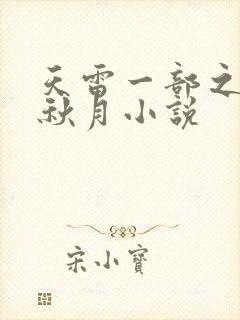 天雷一部之
秋月小説
宋小寶